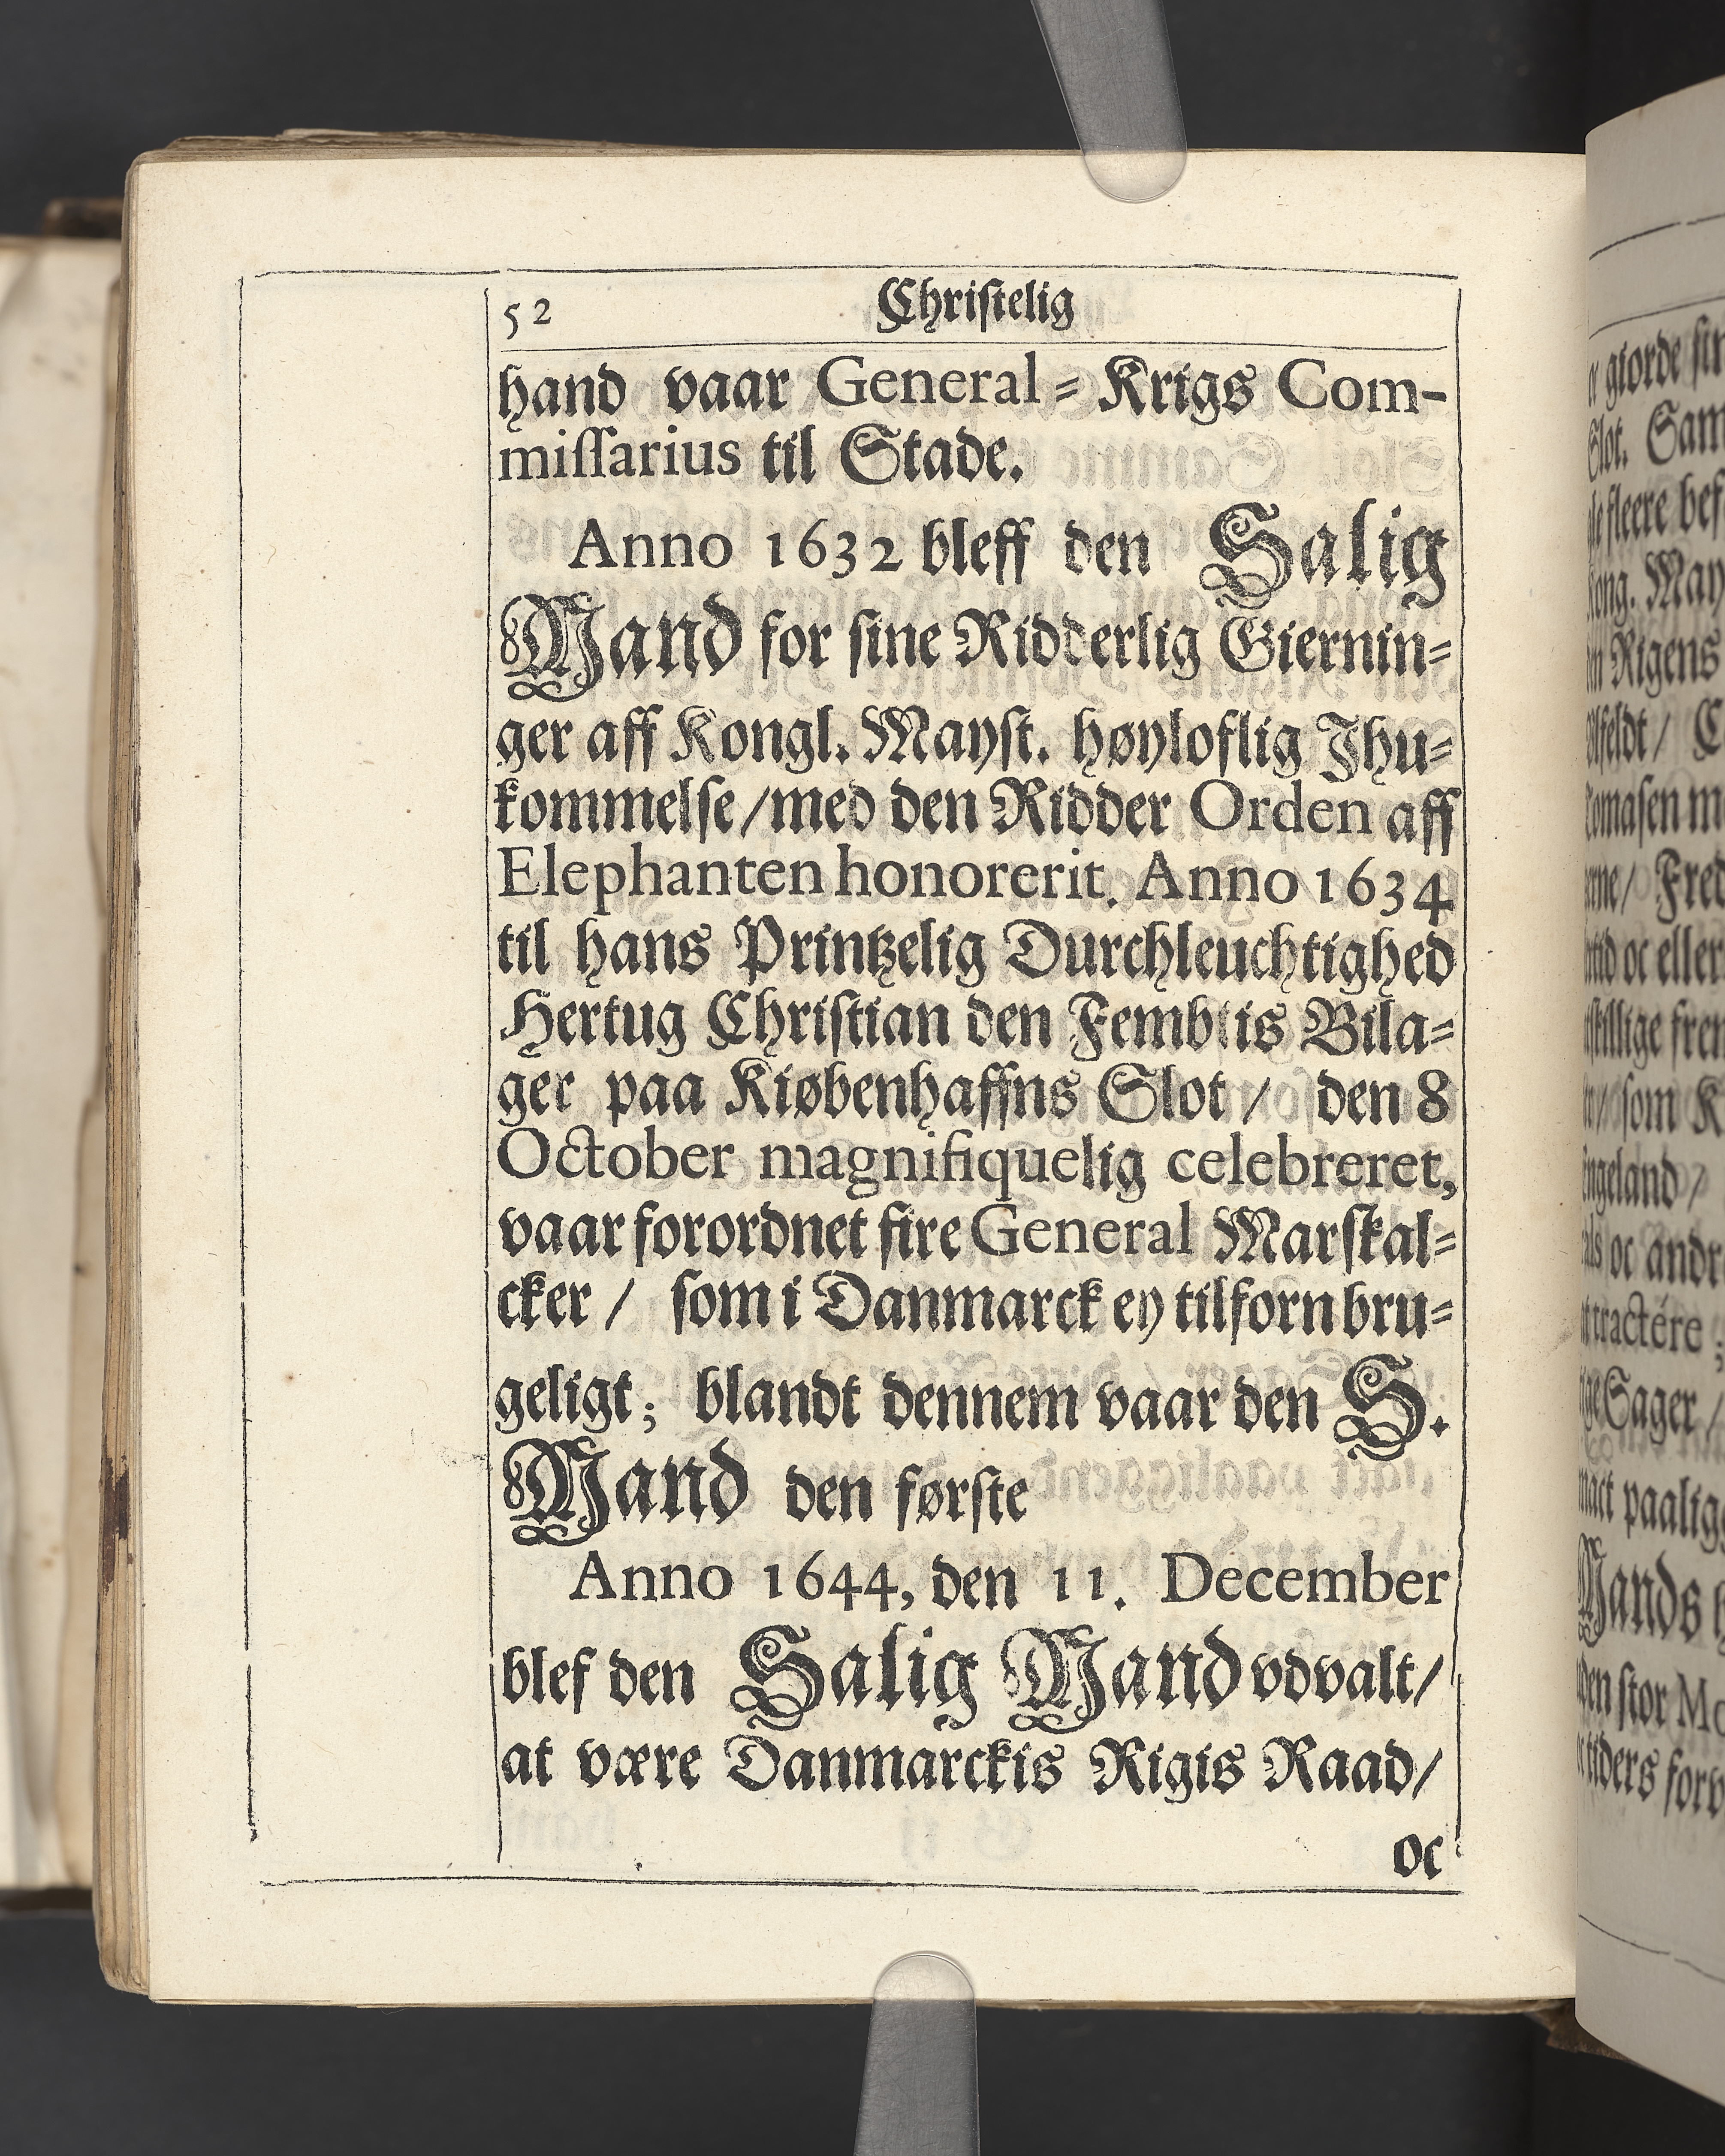 52 Christelig
hand vaar General = Krigs Com-
missarius til Stade.
Anno 1632 bleff den Salig
Mand for sine Ridderlig Giernin=
ger aff Kongl. Mayst. høyloflig Ihu=
kommelse/med den Ridder Orden aff
Elephanten honorerit. Anno 1634
til hans Printzelig Durchleuchtighed
Hertug Christian den Fembtis Bila=
ger paa Kiøbenhaffns Slot / den 8
October magnifiquelig celebreret,
vaar forordnet fire General Marskal=
cker / som i Danmarck ey tilforn bru=
geligt; blandt dennem vaar den S.
Mand den første
Anno 1644, den 11. December
blef den Salig Mand vdvalt/
at være Danmarckis Rigis Raad/
oc
giorde
Slot. Sam
fleere
Kong. May
Rigens
Fred
oc eller
som K
Engeland /
oc andr
tractére ;
Sager /
paalig
Mands
stor Mo
tiders forv